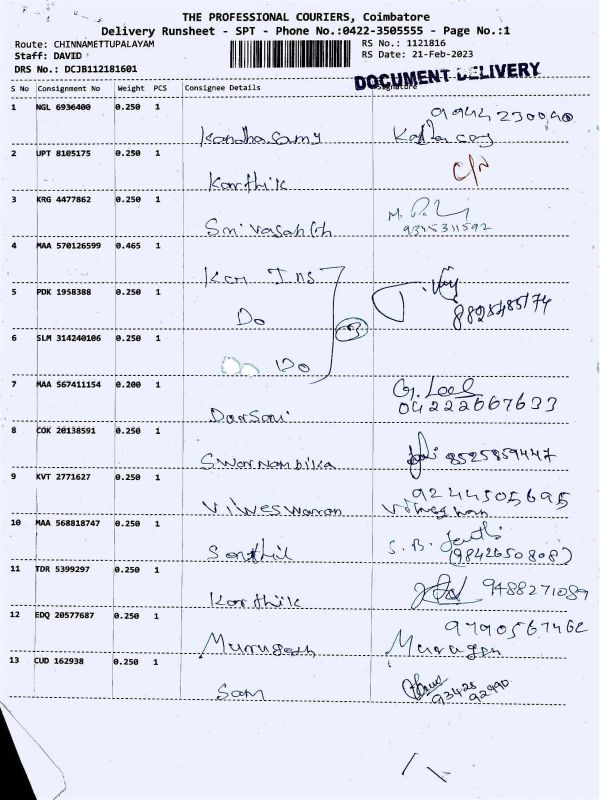 THE PROFESSIONAL COURIERS, Coimbatore
Delivery Runsheet - SPT - Phone No.:0422-3505555 - Page No.:1
Route: CHINNAMETTUPALAYAM RS No.: 1121816
Staff: DAVID RS Date: 21-Feb-2023
DRS No.: DCJB112181601
DOCUMENT DELIVERY
S No Consignment No Weight PCS Consignee Details Signature
1 NGL 6936400 0.250 1
Kandhasamy
2 UPT 8105175 0.250 1
Karthik
3 KRG 4477862 0.250 1
9345311592
4 MAA 570126599 0.465 1
5 PDK 1958388 0.250 1
Do
8825485174
6 SLM 314240106 0.250 1
Do
7 MAA 567411154 0.200 1
04222667633
8 COK 20138591 0.250 1
Swarnambika 8525859447
9 KVT 2771627 0.250 1
9244505695
Viweswaran
10 MAA 568818747 0.250 1
Senthil (9842650808)
11 TDR 5399297 0.250 1
Karthik 9488271089
12 EDQ 20577687 0.250 1
9790567462
Murugesh Murugesh
13 CUD 162938 0.250 1
Sam